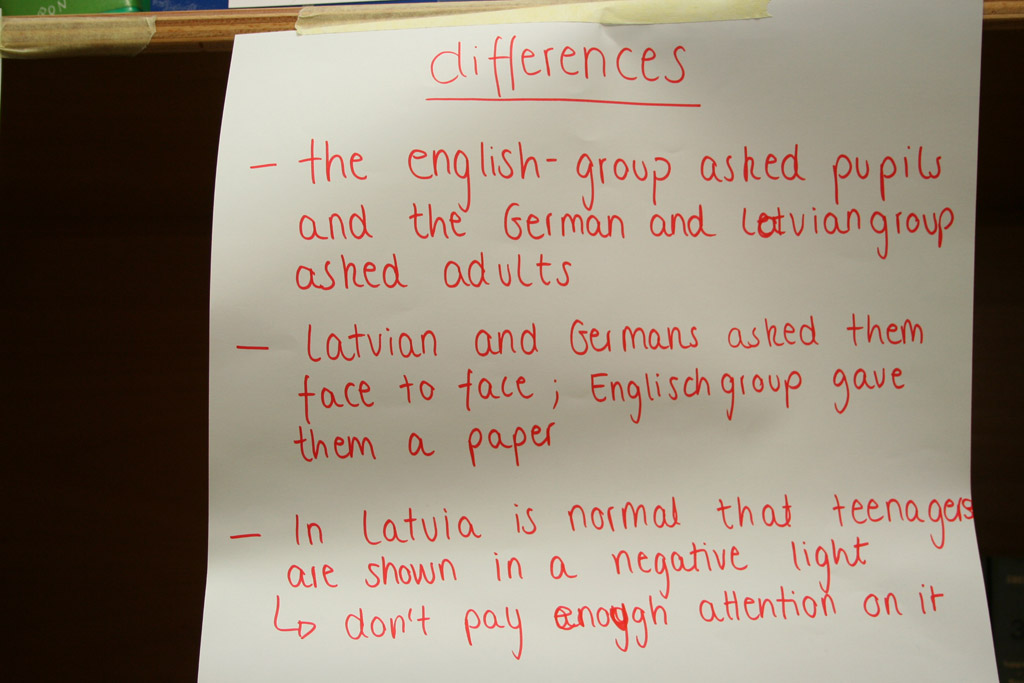 differences
- the english-group asked pupils
and the German and Latvian group
asked adults
- Latvian and Germans asked them
face to face; Englisch group gave
them a paper
- In Latvia is normal that teenagers
are shown in a negative light
↳ don't pay enough attention on it